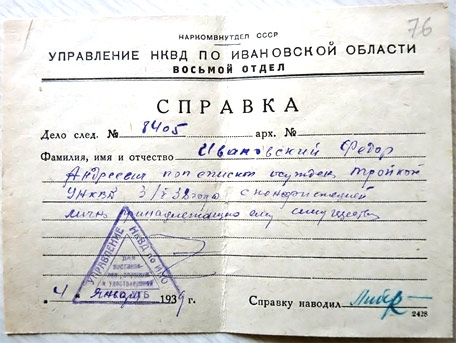 76
НАРКОМВНУТДЕЛ СССР
УПРАВЛЕНИЕ НКВД ПО ИВАНОВСКОЙ ОБЛАСТИ
ВОСЬМОЙ ОТДЕЛ
СПРАВКА
Дело след. № 8405 арх. №
Фамилия, имя и отчество Ивановский Федор
Андреевич поп епископ осужден тройкой
УНКВД с конфискацией
лично принадлежащего ему имущества
УПРАВЛЕНИЕ НКВД по ИО
ДЛЯ
4 Январь 1939 г. Справку наводил
2428